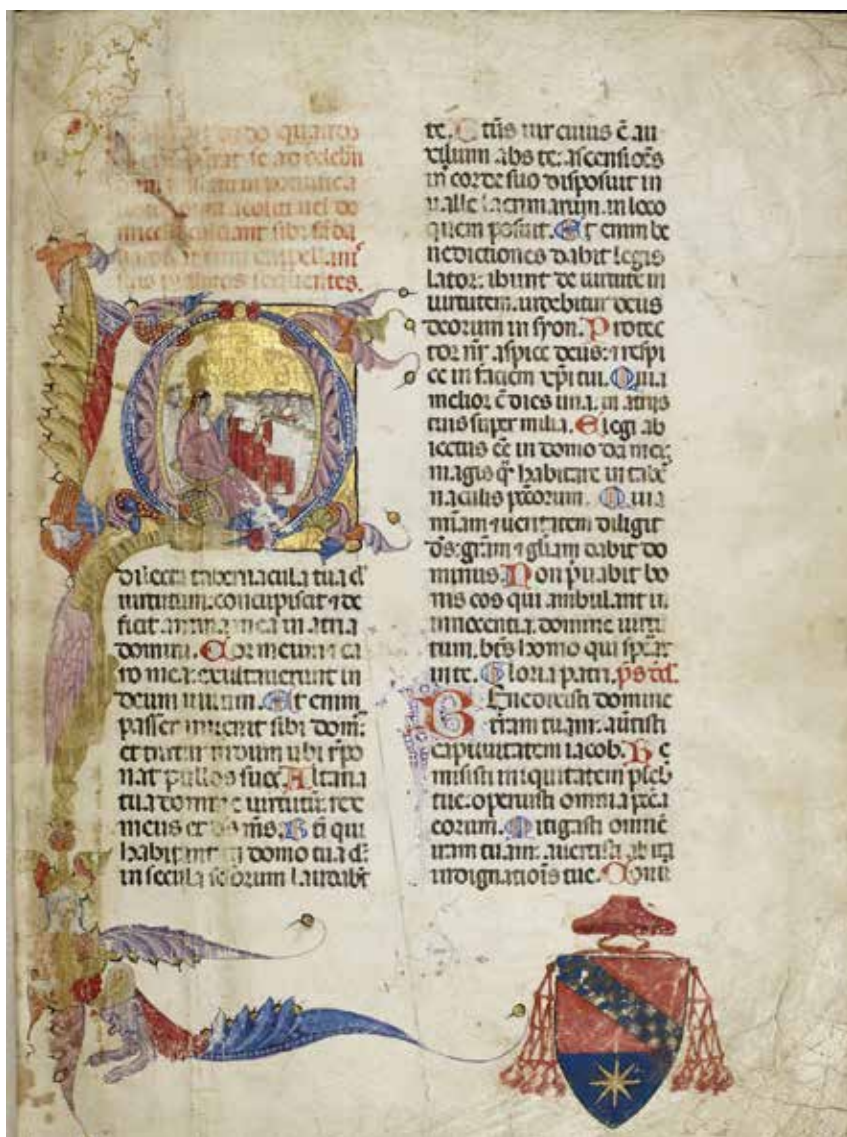 quantos
parat se ad celebrā
dum missam in pontifica
acoliti uel do
sibi sāda
cappellanis
suis psalmos sequentes.
Q
dilecta tabernacula tua dn̄e
uirtutum. concupiscit ⁊ de
ficit anima mea in atria
domini. Cor meum ⁊ ca
ro mea: exultauerunt in
deum uiuum. Et enim
passer inuenit sibi domū:
et turtur nidum ubi rēpo
nat pullos suos. Altaria
tua domine uirtutū: rex
meus et ds̄ ms̄. Bt̄i qui
habitant in domo tua dn̄e:
in secula sclorum laudabt̄
te. Bt̄us uir cuius ē au
xilium abs te: ascensiōes
in corde suo disposuit in
ualle lacrimarum. in loco
quem posuit. Et enim be
nedictiones dabit legis
lator: ibunt de uirtute in
uirtutem. uidebitur deus
deorum in syon. Protec
tor nr̄ aspice deus: ⁊ respi
ce in faciem xp̄i tui. Quia
melior ē dies una. in atriis
tuis super milia. Elegi ab
iectus eē in domo dei mei:
magis q̄ habitare in tab̄
naculis pc̄corum. Quia
mīam ⁊ ueritatem diligit
ds̄: grām ⁊ glīam dabit do
minus. Non p̄uabit bo
nis eos qui ambulant in
innocentia. domine uirtu
tum. bt̄s homo qui sperat
in te. Gloria patri. ps̄
Benedixisti domine
terram tuam: auertisti
captiuitatem iacob. Re
misisti iniquitatem pleb
tue: operuisti omnia pc̄ca
eorum. Mitigasti omnē
iram tuam: auertisti ab ira
indignatiōis tue. Conu